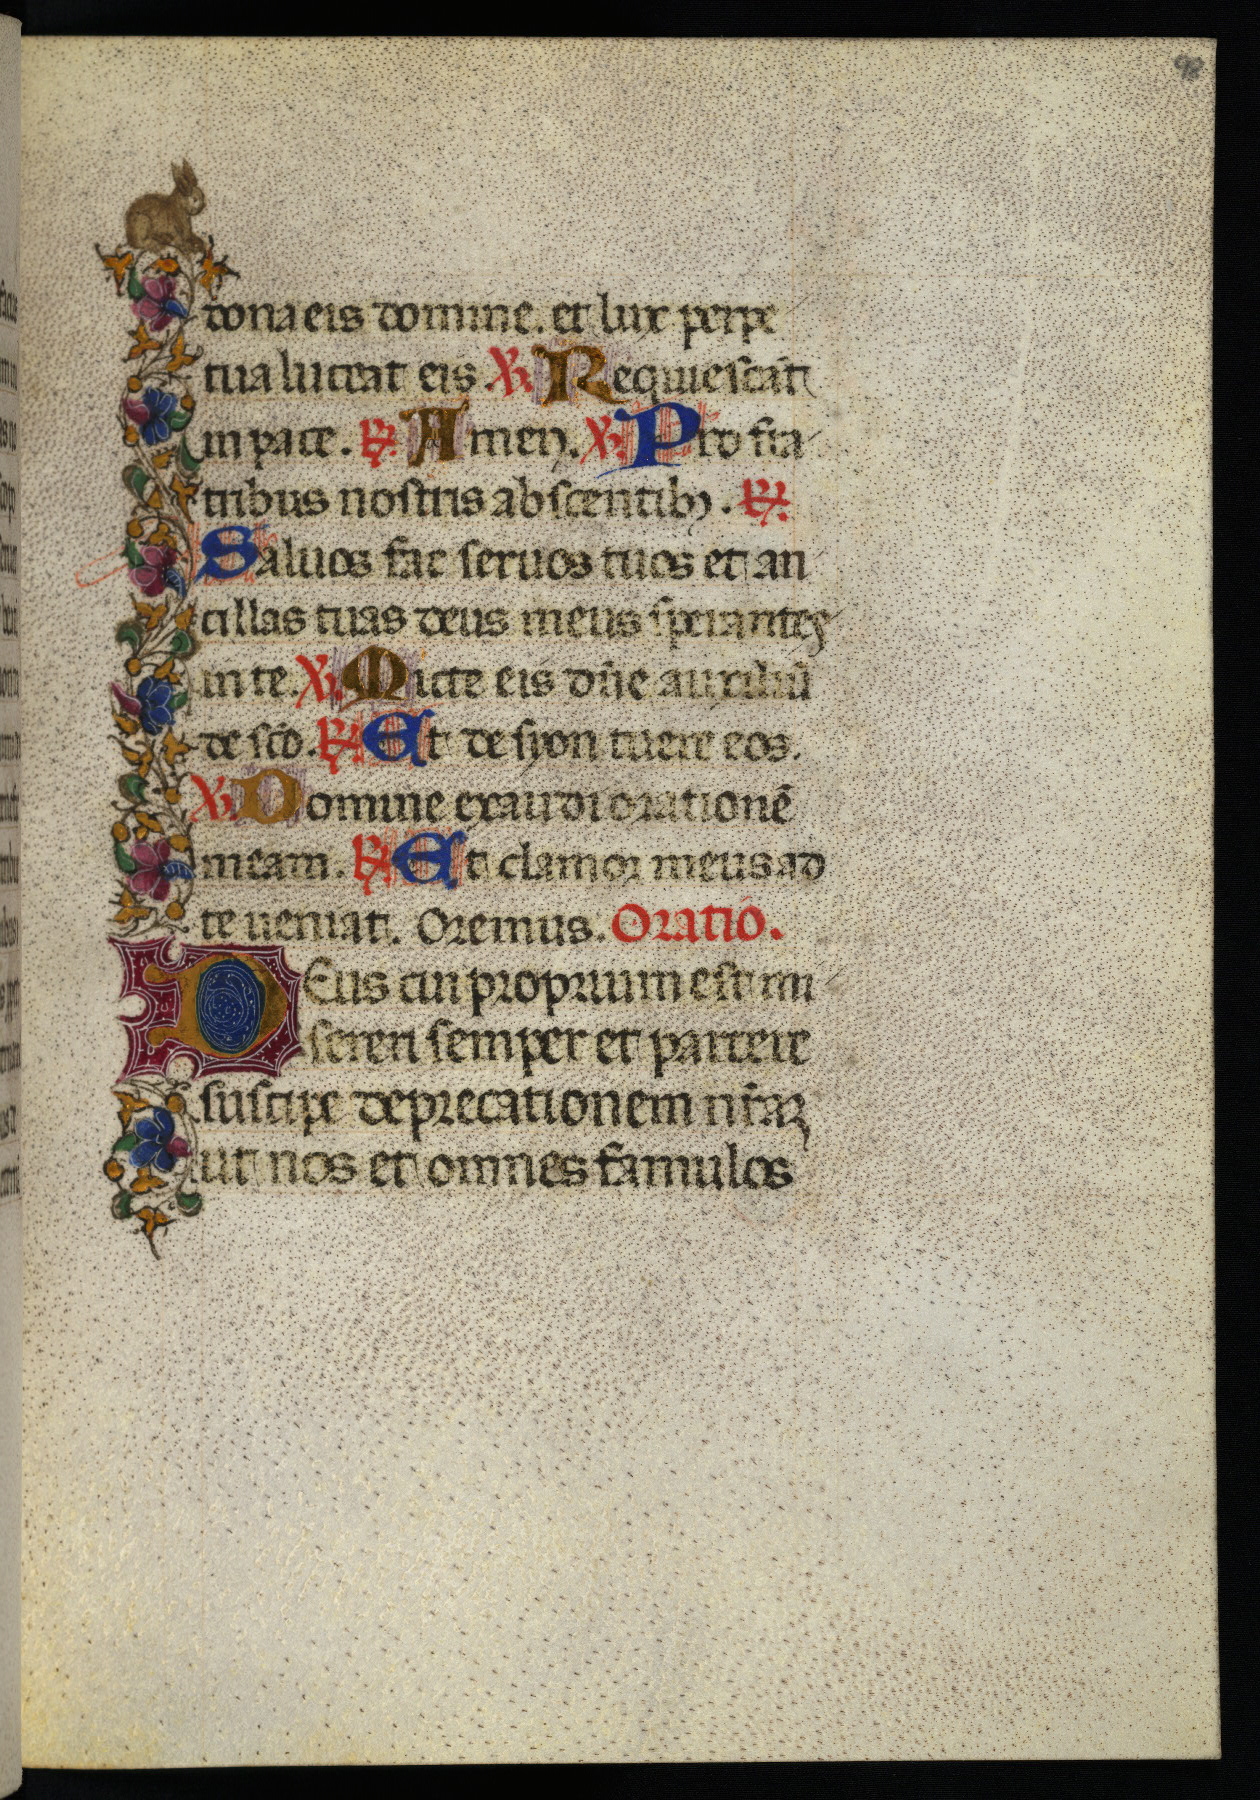 dona eis domine. et lux perpe
tua luceat eis. ℣. Requiescāt
in pace. ℟. Amen. ℣. Pro fra
tribus nostris abscentibꝫ. ℟.
Saluos fac seruos tuos et an
cillas tuas deus meus sperantes
in te. ℣. Micte eis dn̄e auxiliū
de sc̄o. ℟. Et de syon tuere eos.
℣. Domine exaudi orationē
meam. ℟. Et clamor meus ad
te ueniat. Oremus. Oratio.
DEus cui proprium est mi
sereri semper et parcere
suscipe deprecationem nr̄aꝫ
ut nos et omnes famulos